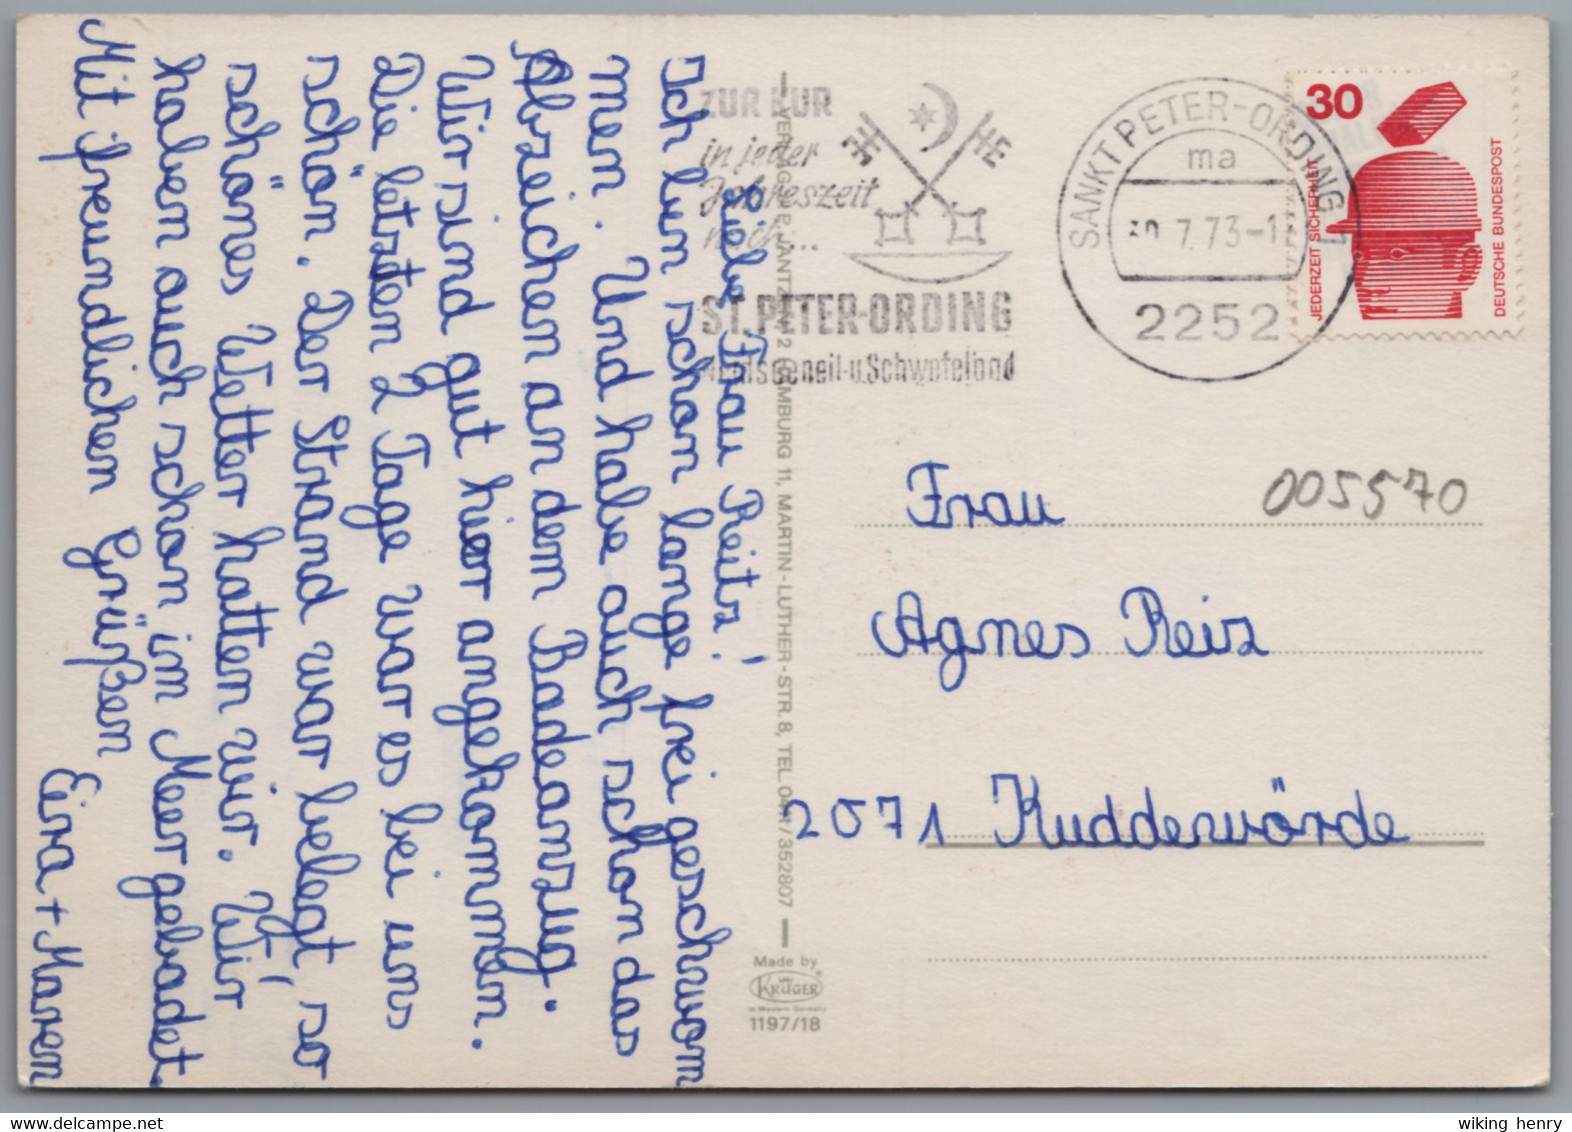 Liebe Frau Reitz!
Ich bin schon lange frei geschwom
men. Und habe auch schon das
Abzeichen an dem Badeanzug.
Wir sind gut hier angekommen.
Die letzten 2 Tage war es bei uns
schön. Der Strand war belegt, so
schönes Wetter hatten wir. Wir
haben auch schon im Meer gebadet.
Mit freundlichen Grüßen
+ Maren
ZUR KUR
in jeder
Jahreszeit
nach...
ST. PETER-ORDING
u.Schwefelbad
SANKT PETER-ORDING 1
ma
30.7.73-1
2252
30
JEDERZEIT SICHERHEIT
DEUTSCHE BUNDESPOST
005570
Frau
Agnes Reiz
2071 Kuddewörde
HAMBURG 11, MARTIN-LUTHER-STR. 8, TEL. 0411/352807
Made by
KRÜGER
in Western Germany
1197/18
wiking henry